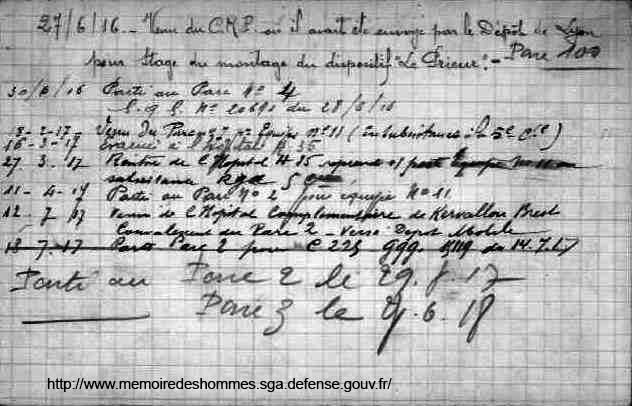 27/6/16 - Venu du C.M.P. où il avait été envoyé par le Dépôt de Lyon
pour Stage du montage du dispositif "Le Prieur". -
Parc 100
30/6/16 Parti au Parc No 4
G.Q.G. No 20690 du 28/6/16
18-2-17 Venu du Parc pr Equipe No 11 (en subsistance à la 5e Cie)
16-3-17 évacué à l'Hôpital H 35
27.3.17 Rentré de l'Hopital H 35
subsistance 5
11-4-17 Parti au Parc No 2 pour équipe No 11.
12.7.17 Venu de l'Hopital Complémentaire de Kervallon Brest
Convalescent du Parc 2 - Versé Dépot Mobile
18.7.17 Parti Parc 2 pour C 225 GQG du 14.7.17
Parti au Parc 2 le 29.8.17
Parc 3 le 9.6.18
http://www.memoiredeshommes.sga.defense.gouv.fr/